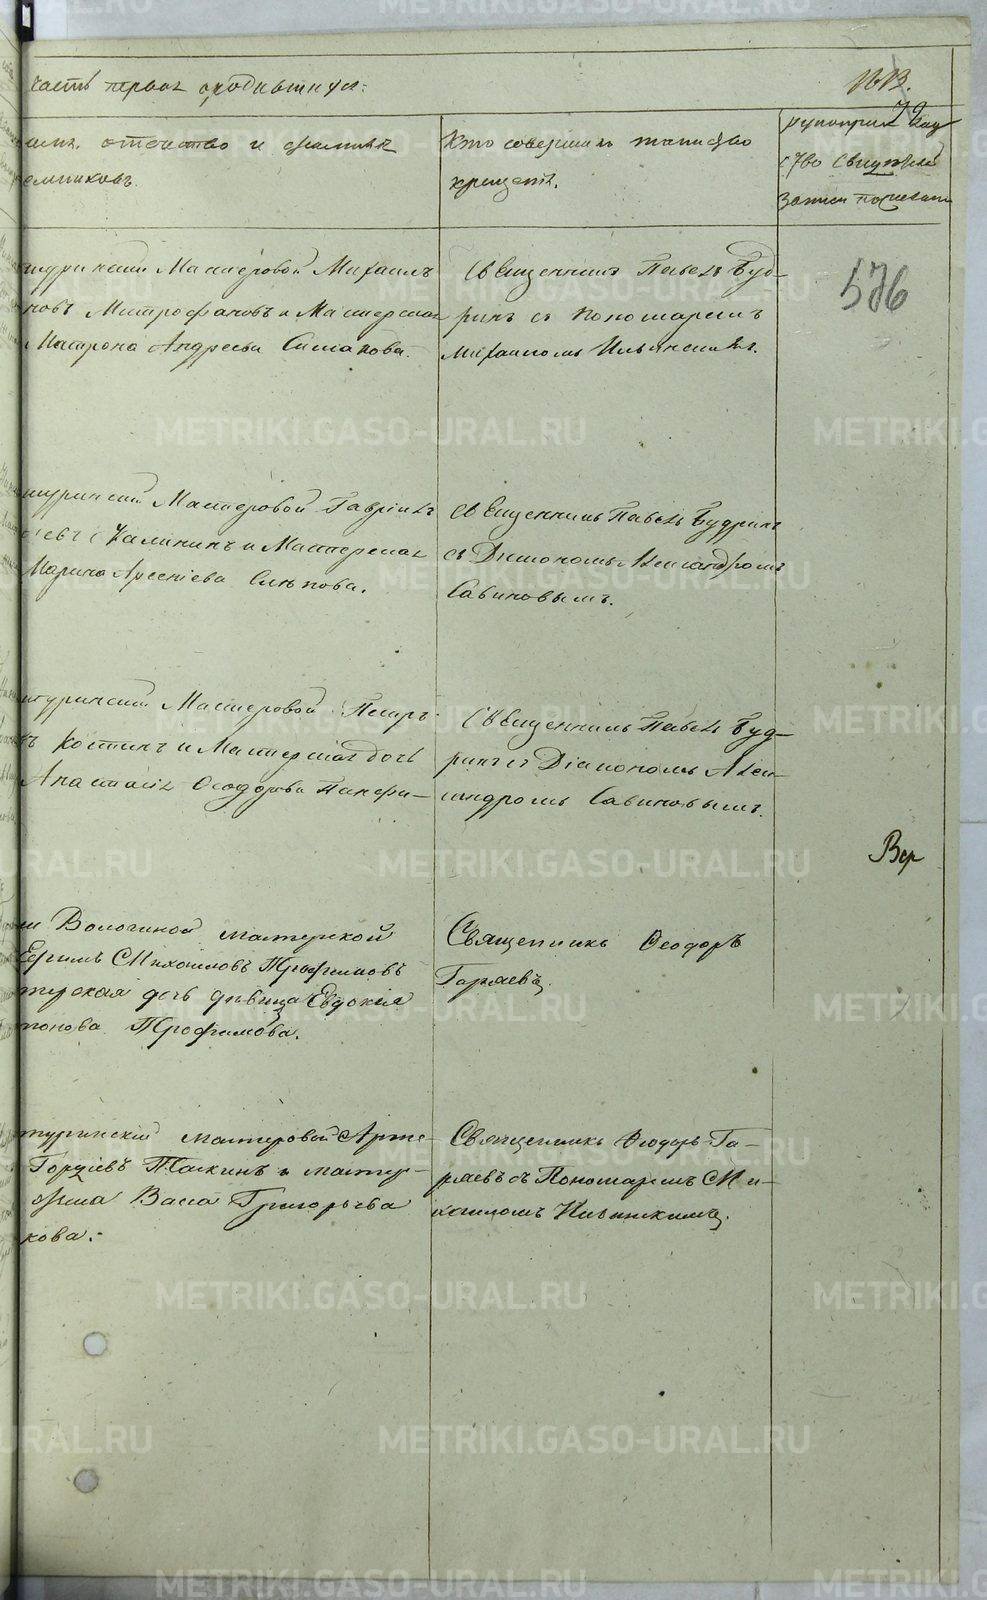 часть первая о родившихся:
отчество и фамилія
емниковъ.
Кто совершалъ таинство
крещенія.
рукоприкладство свидѣтелей
записи по желанію
576
туринскій Мастеровой Михаилъ
новъ Митрофановъ и Мастерская
Матрона Андреева Симакова.
Священникъ Павелъ Буд-
ринъ съ Пономаремъ
Михаиломъ Ильинскимъ.
туринскій Мастеровой Гавріилъ
Калининъ и Мастерская
Марина Арсеніева Слѣпова.
Священникъ Павелъ Будринъ
съ Діакономъ Александромъ
Савиновымъ.
туринскій Мастеровой Петръ
Костинъ и Мастерская дочь
Анастасія Ѳеодорова Панфи-
Священникъ Павелъ Буд-
ринъ съ Діакономъ Алек-
сандромъ Савиновымъ.
Вер
и Вологиной мастерской
Ефимъ Михаиловъ Трофимовъ
терская дочь дѣвица Евдокія
Трофимова.
Священникъ Ѳеодоръ
Горяевъ
туринскій мастеровой Арте-
Гордіевъ Таскинъ и мастер-
Васса Григорьева
кова.
Священникъ Ѳеодоръ Го-
ряевъ съ Пономаремъ Ми-
хаиломъ Ильинскимъ.
METRIKI.GASO-URAL.RU